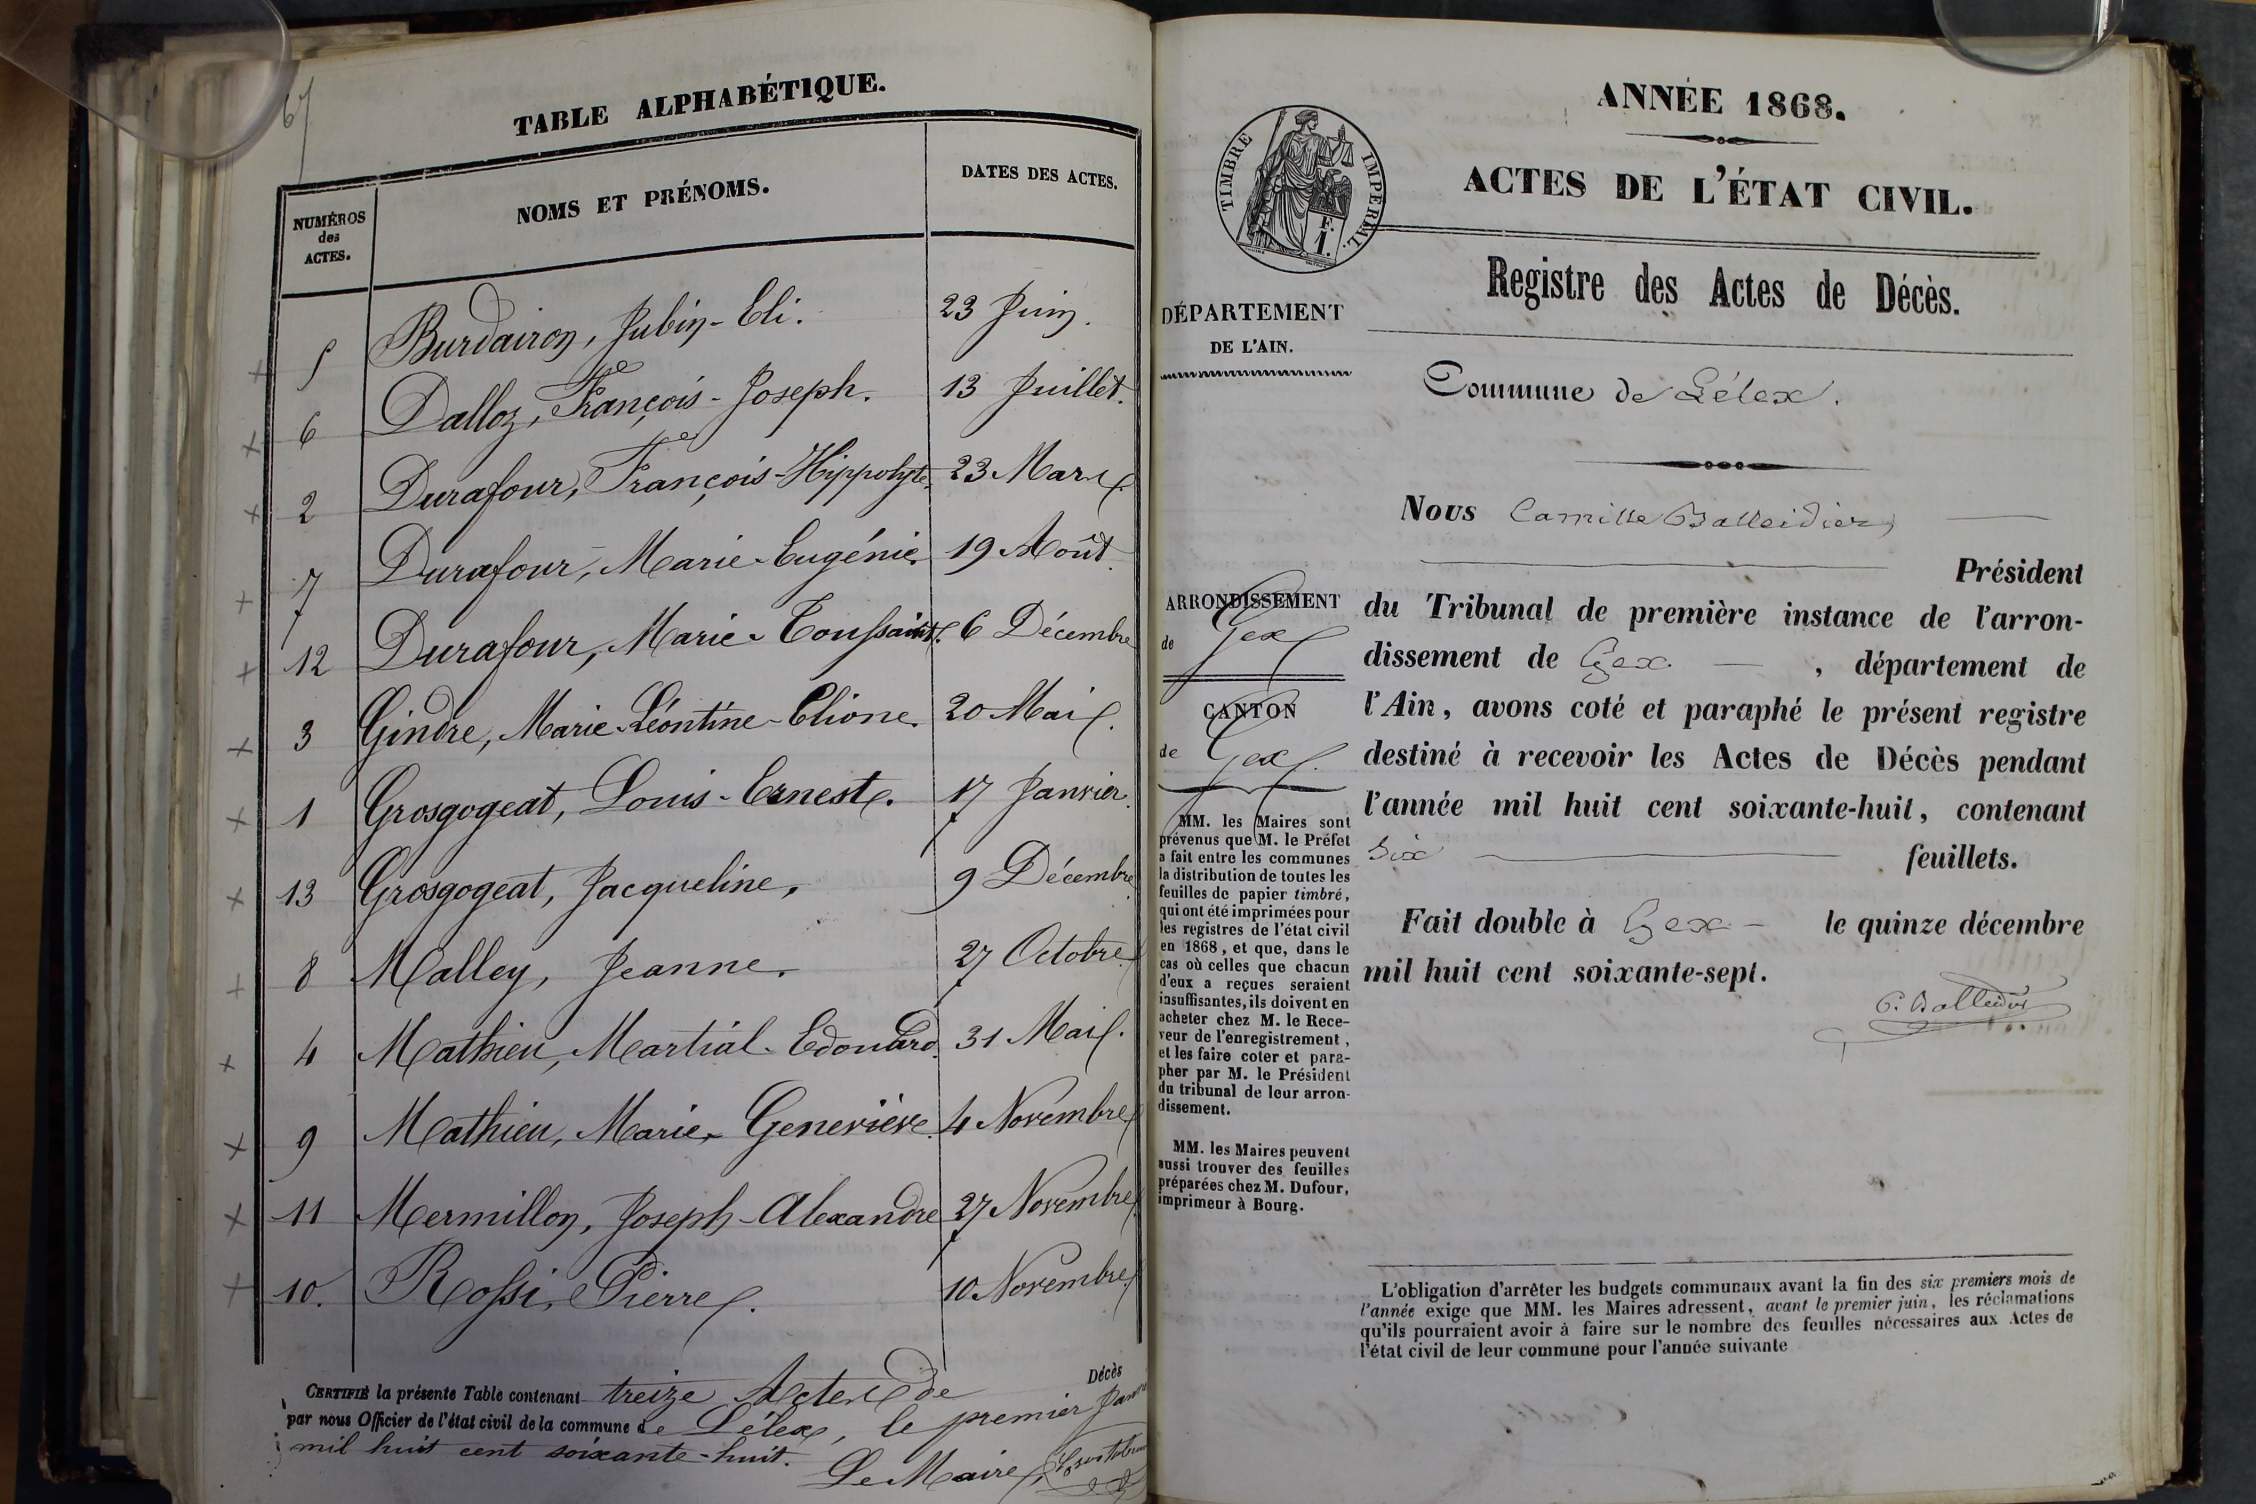 67
TABLE ALPHABÉTIQUE.
NUMÉROS
des
ACTES.
NOMS ET PRÉNOMS.
DATES DES ACTES.
5 Burdairon, Jubin-Eli. 23 Juin.
6 Dalloz, François-Joseph. 13 Juillet.
2 Durafour, François-Hippolyte. 23 Mars.
7 Durafour, Marie-Eugénie. 19 Août.
12 Durafour, Marie-Toussaint. 6 Décembre
3 Gindre, Marie-Léontine-Elione. 20 Mai.
1 Grosgogeat, Louis-Ernest. 17 Janvier.
13 Grosgogeat, Jacqueline, 9 Décembre.
8 Malley, Jeanne. 27 Octobre.
4 Mathieu, Martial-Edouard. 31 Mai.
9 Mathieu, Marie-Geneviève. 4 Novembre.
11 Mermillon, Joseph-Alexandre 27 Novembre.
10. Rossi, Pierre. 10 Novembre.
CERTIFIÉ la présente Table contenant treize Actes de Décès
par nous Officier de l'état civil de la commune de Lélex, le premier
mil huit cent soixante-huit.
Le Maire,
ANNÉE 1868.
TIMBRE IMPÉRIAL.
F.
1.
ACTES DE L'ÉTAT CIVIL.
Registre des Actes de Décès.
DÉPARTEMENT
DE L'AIN.
Commune de Lélex.
ARRONDISSEMENT
de Gex
CANTON
de Gex.
MM. les Maires sont
prévenus que M. le Préfet
a fait entre les communes
la distribution de toutes les
feuilles de papier timbré,
qui ont été imprimées pour
les registres de l'état civil
en 1868, et que, dans le
cas où celles que chacun
d'eux a reçues seraient
insuffisantes, ils doivent en
acheter chez M. le Rece-
veur de l'enregistrement,
et les faire coter et para-
pher par M. le Président
du tribunal de leur arron-
dissement.
MM. les Maires peuvent
aussi trouver des feuilles
préparées chez M. Dufour,
imprimeur à Bourg.
Nous Camille Balleidier,
Président
du Tribunal de première instance de l'arron-
dissement de Gex. , département de
l'Ain, avons coté et paraphé le présent registre
destiné à recevoir les Actes de Décès pendant
l'année mil huit cent soixante-huit, contenant
Six feuillets.
Fait double à Gex le quinze décembre
mil huit cent soixante-sept.
C. Balleidier
L'obligation d'arrêter les budgets communaux avant la fin des six premiers mois de
l'année exige que MM. les Maires adressent, avant le premier juin, les réclamations
qu'ils pourraient avoir à faire sur le nombre des feuilles nécessaires aux Actes de
l'état civil de leur commune pour l'année suivante